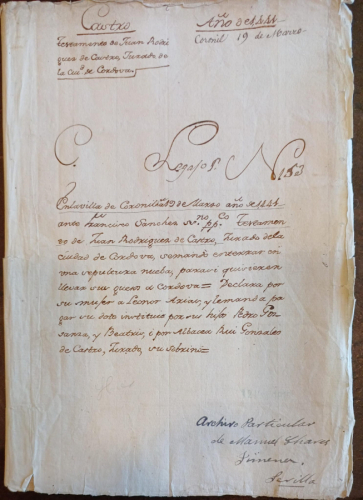 Castro
Testamento de Juan Rodri
guez de Castro, Jurado de
la Ciu.d de Cordova,
Año de 1441
Coronil 19 de Marzo
C. Legajo 5º. N 153
En la villa de Coronil a 19 de Marzo año de 1441
ante Francisco Sanchez Sno. pp.co Testamen
to de Juan Rodriguez de Castro, Jurado de la
ciudad de Cordova, se mando enterrar en
una sepultura nueba, para si quisieren
llevar sus guesos a Cordova = Declara por
su mujer a Leonor Arias, y le manda pa
gar su dote instituio por sus hijos Pedro Gon
salez, y Beatriz, i por Albacea Rui Gonzales
de Castro, Jurado, su Sobrino =
Archivo Particular
de Manuel Chaves
Jimenez.
Sevilla